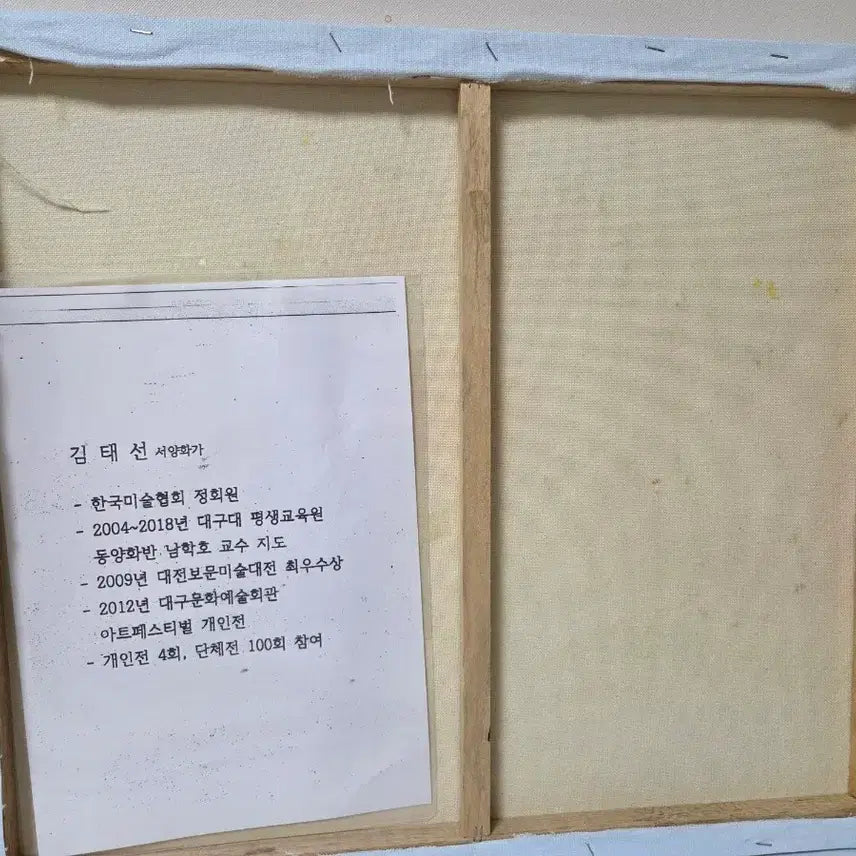 김 태 선 서양화가
- 한국미술협회 정회원
- 2004~2018년 대구대 평생교육원
동양화반 남학호 교수 지도
- 2009년 대전보문미술대전 최우수상
- 2012년 대구문화예술회관
아트페스티벌 개인전
- 개인전 4회, 단체전 100회 참여